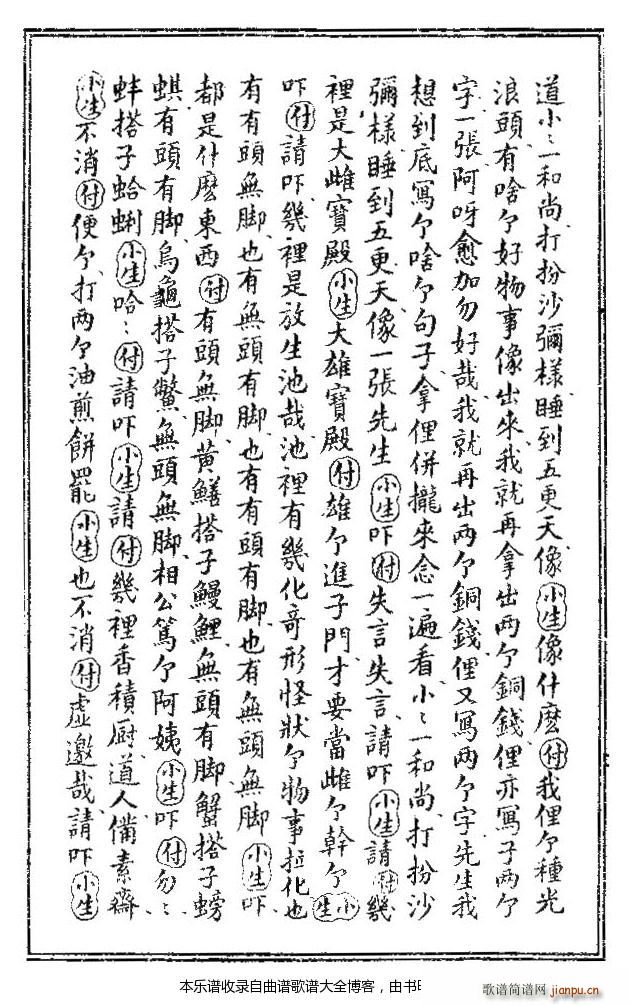 道小〻一和尚打扮沙彌樣睡到五更天像小生像什麽付我俚个種光
浪頭有啥个好物事像出來我就再拿出兩个銅錢俚亦寫子兩个
字一張阿呀愈加勿好哉我就再出兩个銅錢俚又寫兩个字先生我
想到底寫个啥个句子拿俚併攏來念一遍看小〻一和尚打扮沙
彌樣睡到五更天像一張先生小生吓付失言失言請吓小生請付幾
裡是大雌寶殿小生大雄寶殿付雄个進子門才要當雌个幹个小生
吓付請吓幾裡是放生池哉池裡有幾化奇形怪狀个物事拉化也
有有頭無脚也有無頭有脚也有有頭有脚也有無頭無脚小生吓
都是什麽東西付有頭無脚黄鱔搭子鰻鯉無頭有脚蟹搭子螃
蜞有頭有脚烏龜搭子鱉無頭無脚相公篤个阿姨小生吓付勿〻
蚌搭子蛤蜊小生哈〻付請吓小生請付幾裡香積厨道人備素齋
小生不消付便个打兩个油煎餅罷小生也不消付虚邀哉請吓小生
本乐谱收录自曲谱歌谱大全博客，由书
歌谱简谱网
jianpu.cn